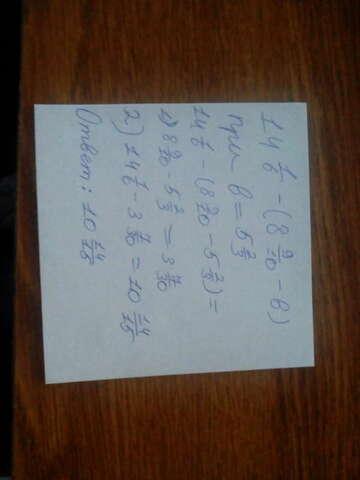 14 1/6 - (8 9/10 - в)
при в = 5 2/3
14 1/6 - (8 9/10 - 5 2/3) =
1) 8 9/10 - 5 2/3 = 3 7/30
2) 14 1/6 - 3 7/30 = 10 14/15
Ответ: 10 14/15